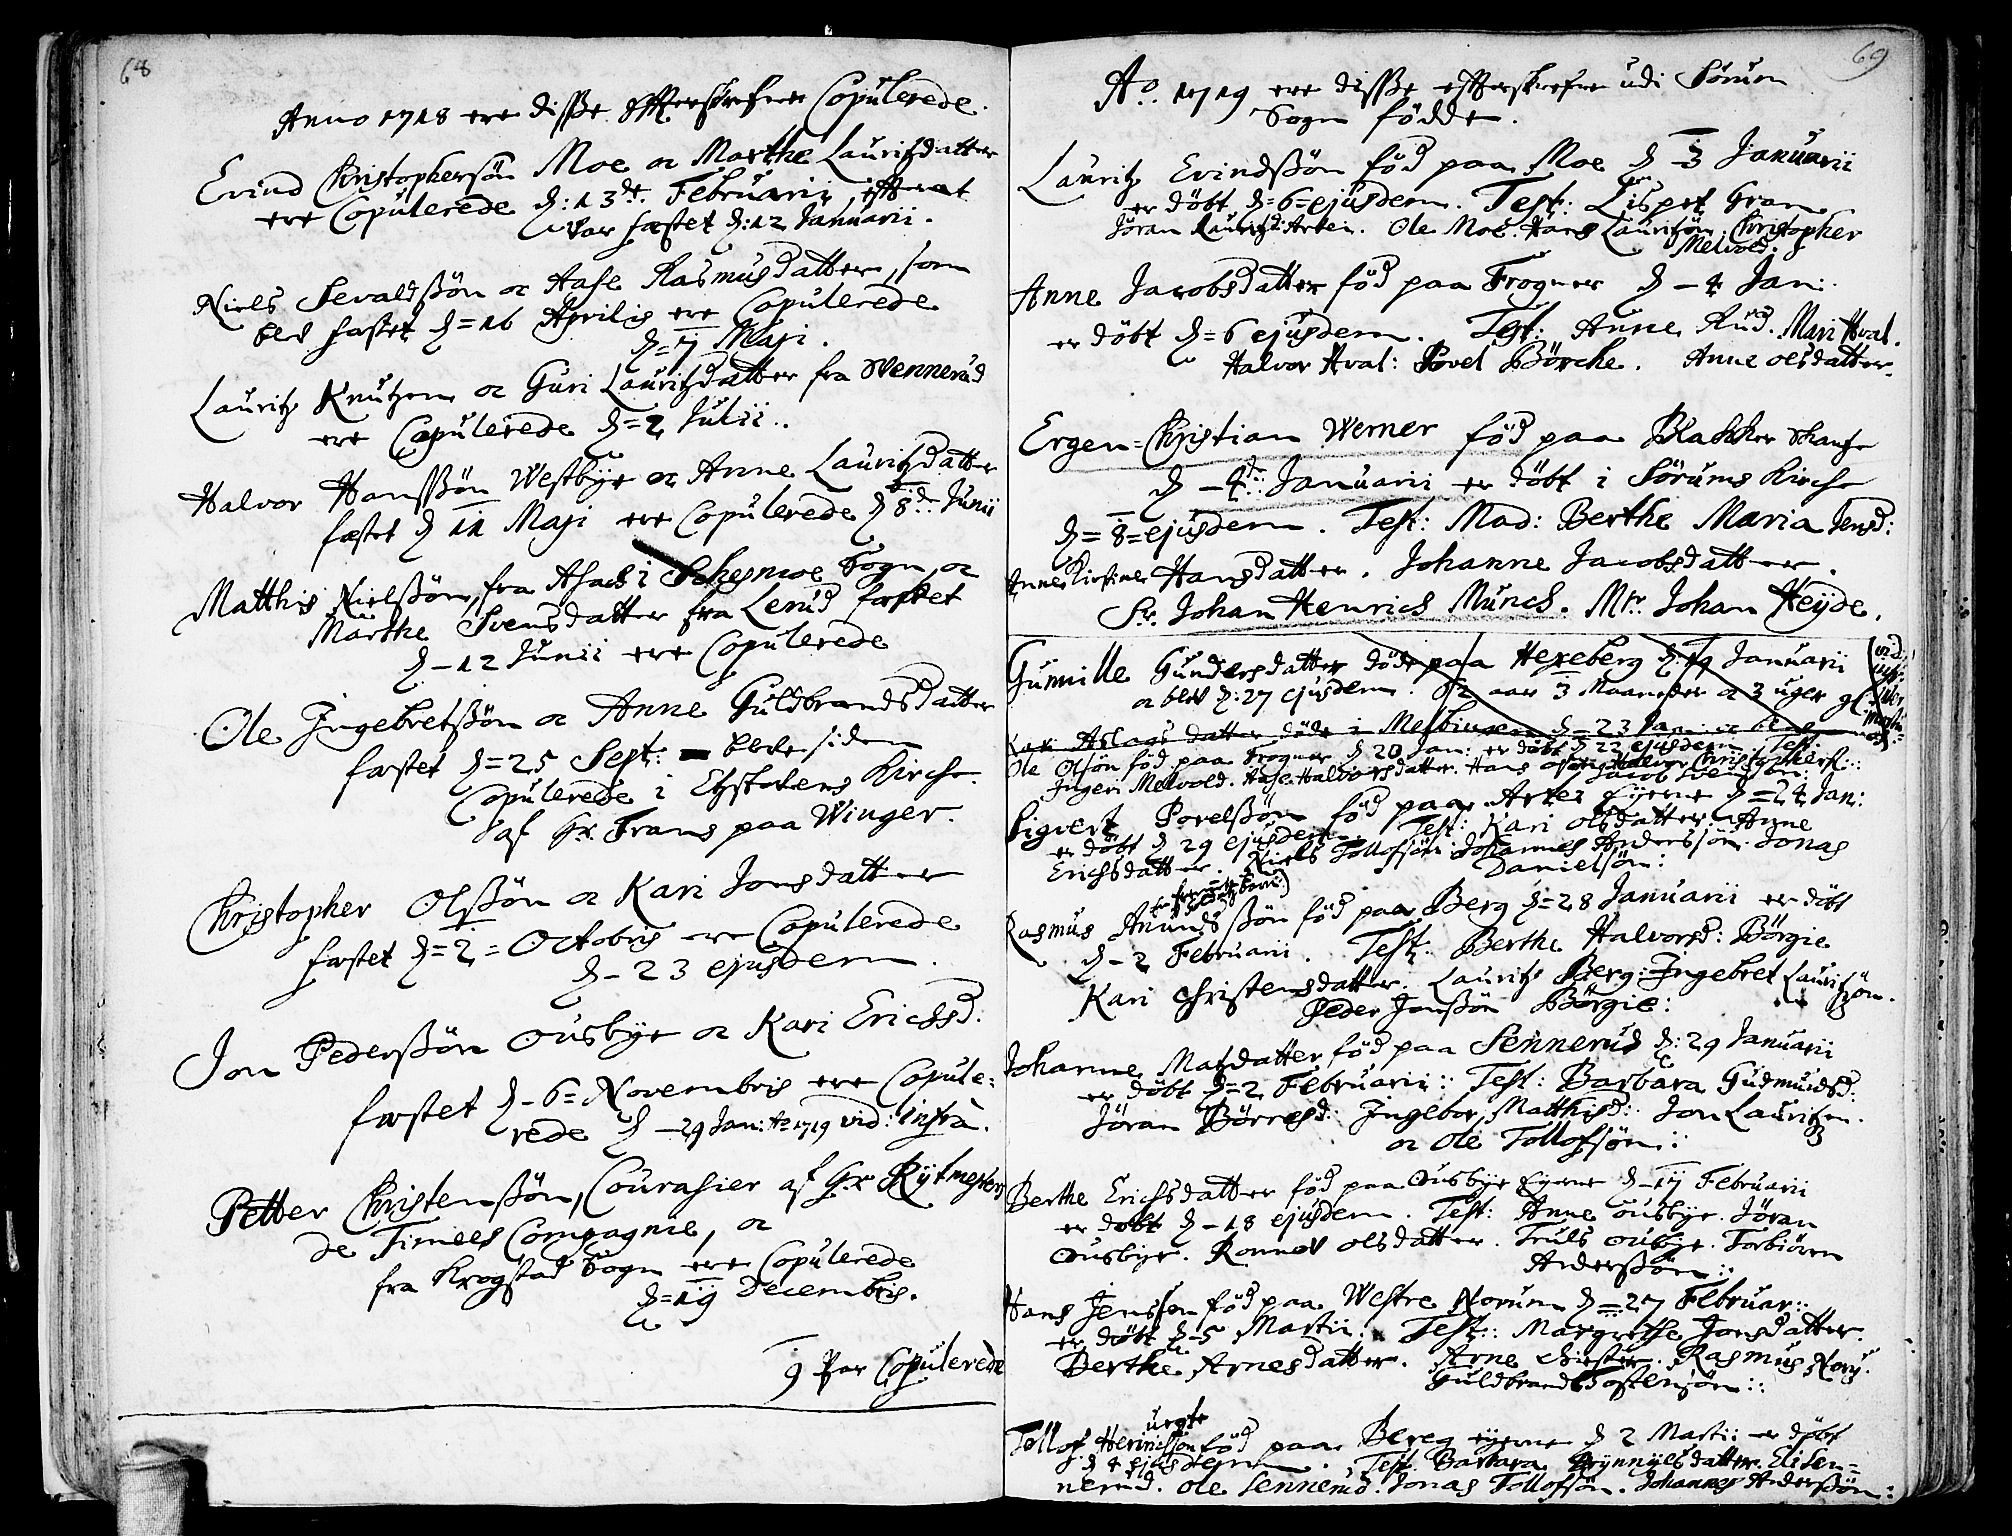 68
Anno 1718 ere disse effterskrefne Copulerede.
Evind Christophersön Moe oc Marthe Lauritzdatter
ere Copulerede d: 13de Februarii, effterat
var fæstet d: 12 Januarii.
Niels Sevaldssön oc Aase Rasmusdatter, som
blef fæstet d=16 Aprilis ere Copulerede
d=7 Maji.
Lauritz Knutzen oc Guri Lauritzdatter fra Wennerud
ere Copulerede d=2 Julii.
Halvor Hanssön Westbye oc Anne Lauritzdatter
fæstet d 11 Maji ere Copulerede d 8de Junii
Matthis Nielssön fra Asach i Schesmoe Sogn, oc
Marthe Svensdatter fra Lerud fæstet
d-12 Junii ere Copulerede
Ole Ingebretssön oc Anne Guldbrandsdatter
fæstet d=25 Sept: bleve siden
Copulerede i Kirche
af Hr Frans paa Winger.
Christopher Olssön oc Kari Jonsdatter
fæstet d=2=Octobris ere Copulerede
d-23 ejusdem.
Jon Pederssön Ousbye oc Kari Erichsd.
fæstet d-6=Novembris ere Copule=
rede d-29 Jan: Ao 1719 vid: infra.
Petter Christenssön, Courasier af Hr Rytmesters
de Fimees Compagnie, oc
fra Krogstad Sogn ere Copulerede
d=19 Decembris.
9 Par Copulerede
69
Ao. 1719 ere disse effterskrefne udi Sörum
Sogn födde.
Lauritz Evindssön föd paa Moe d-3 Januarii
er döbt d=6=ejusdem. Test: Lispet Gram
Jöran Lauritzd: Arten. Ole Moe. Hans Lauritzön. Christopher
Melvold.
Anne Jacobsdatter föd paa Frogner d-4 Jan:
er döbt d=6 ejusdem. Test: Anne Rud. Mari Hval.
Halvor Hval: Povel Börche. Anne olsdatter.
Ergen=Christian Werner föd paa Blakker Skanse
d-4de: Januarii er döbt i Sörums Kirche
d=8=ejusdem. Test: Mad: Berthe Maria Jensd:
Anne Kirstine Hansdatter. Johanne Jacobsdatter.
Sr. Johan Henrich Münch. Mr. Johan Heyde.
Gunnille Gundersdatter döde paa Hexeberg d: 19 Januarii
oc blev d: 27 ejusdem. 52 aar 3 Maaneder oc 3 uger
Kari Aslagsdatter döde i Melbingen d=23 Jan: oc
Ole Olsön föd paa Frogner d 20 Jan: er döbt d 22 ejusdem Test:
Ingeri Melvold. Aase Halvorsdatter. Hans Halvor Christophers::
Jacob Svendsön:
Sigvert Povelssön föd paa Arter Eyerne d=24 Jan:
er döbt d 29 ejusdem. Test: Kari olsdatter Anne
Erichsdatter. Niels Tollofsön Johannes Anderssön. Jonas
Danielsön:
Rasmus Anundssön föd paa Berg d=28 Januarii er döbt
d-2 Februarii. Test: Berthe Halvorsd: Börgie
Kari Christensdatter. Lauritz Berg: Ingebret Lauritzön.
Peder Jonssön Börgie:
Johanne Matzdatter föd paa Sennerud d: 29 Januarii
er döbt d=2 Februarii:: Test: Barbara Gudmundsd:
Jöran Börresd: Ingebor Matthisd: Jon Lauritzen.
oc Ole Tollofsön::
Berthe Erichsdatter föd paa Ousbye Eyerne d-17 Februarii
er döbt d-18 ejusdem. Test: Anne Ousbye. Jöran
Ousbye. Ronnov olsdatter. Truls Oubye. Torbiören
Anderssön::
Hans Jenssen föd paa Westre Norum d=27 Februar::
er döbt d-5 Martii. Test:: Margrethe Jonsdatter.
Berthe Arnesdatter. Arne Rasmus Noru.
Guldbrand Tostensön::
uegte
Tollof Herinchsön föd paa Bereg eyerne d 2 Martii er döbt
d 4 ejusdem. Test Barbara Brynnyelsdatter. Eli Sen=
nerud. Ole Sennerud. Jonas Tollofsön. Johannes Anderssön: